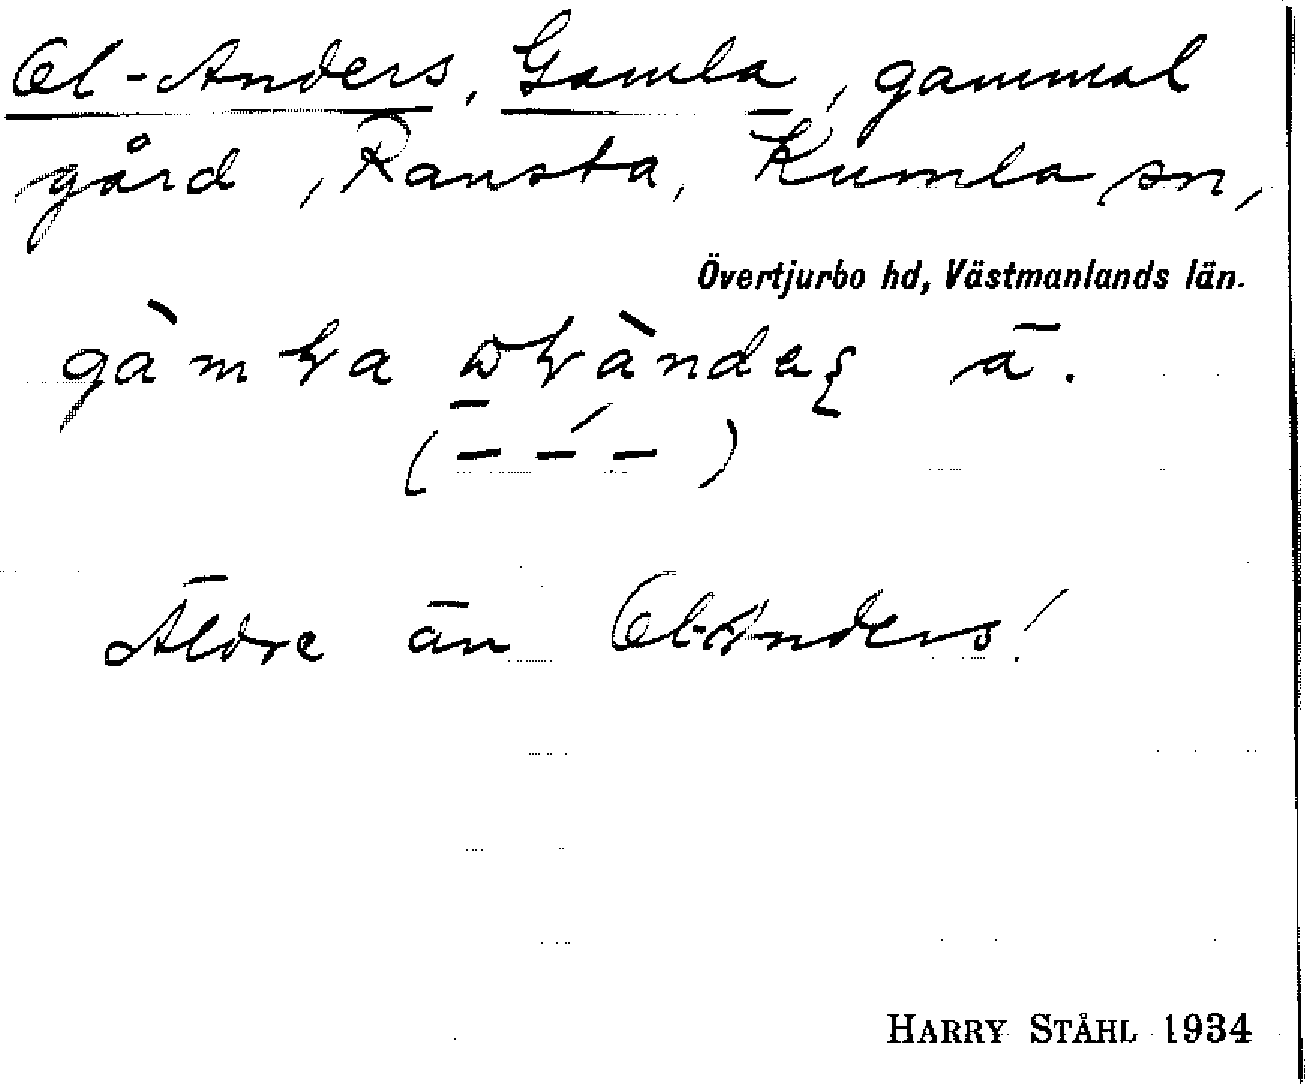 Ol-Anders, Gamla, gammal
gård, Ransta, Kumla sn,
Övertjurbo hd, Västmanlands län.
ā.
( – –́ – )
Äldre än Ol-Anders!
HARRY STÅHL 1934